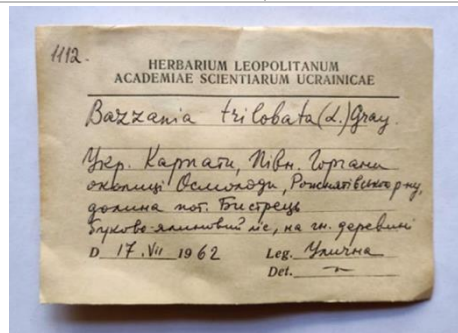 1112.
HERBARIUM LEOPOLITANUM
ACADEMIAE SCIENTIARUM UCRAINICAE
Bazzania trilobata (L.) Gray.
Укр. Карпати, Півн. Горгани
околиці Осмолоди, Рожнятівського р-ну,
долина пот. Бистрець
буково-ялиновий ліс, на гн. деревині
D 17.VII 1962 Leg. Улична
Det. –〃–